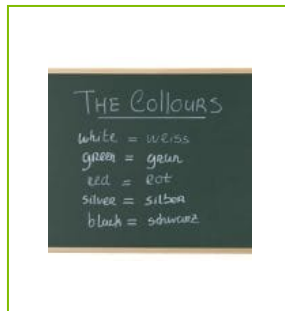 THE COllOURS
white = weiss
green = grün
red = rot
silver = silber
black = schwarz